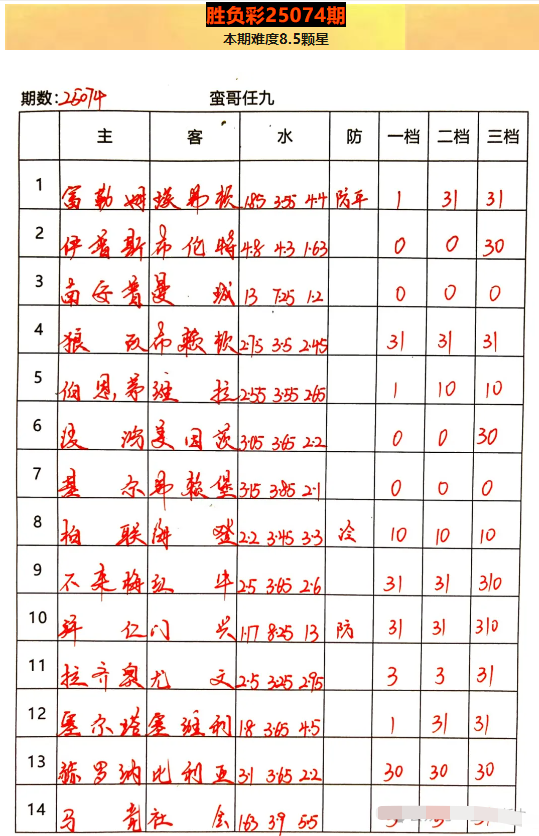 胜负彩25074期
本期难度8.5颗星
期数: 25074 蛮哥任九
主 客 水 防 一档 二档 三档
1 富勒姆 埃弗顿 1.85 3.55 4.4 防平 1 31 31
2 伊普斯 布伦特 4.8 4.3 1.63 0 0 30
3 南安普 曼城 13 7.25 1.2 0 0 0
4 狼队 布赖顿 2.75 3.5 2.45 31 31 31
5 伯恩茅 维拉 2.55 3.55 2.65 1 10 10
6 波鸿 美因茨 3.05 3.65 2.2 0 0 30
7 基尔 弗赖堡 3.15 3.85 2.1 0 0 0
8 柏联 海登 2.2 3.45 3.3 冷 10 10 10
9 不来梅 红牛 2.5 3.65 2.6 31 31 310
10 拜仁 门兴 1.17 8.25 13 防 31 31 310
11 拉齐奥 尤文 2.5 3.25 2.95 3 3 31
12 塞尔塔 塞维利 1.8 3.65 4.5 1 31 31
13 赫罗纳 比利亚 3.1 3.65 2.2 30 30 30
14 马竞 社会 1.63 3.9 5.5